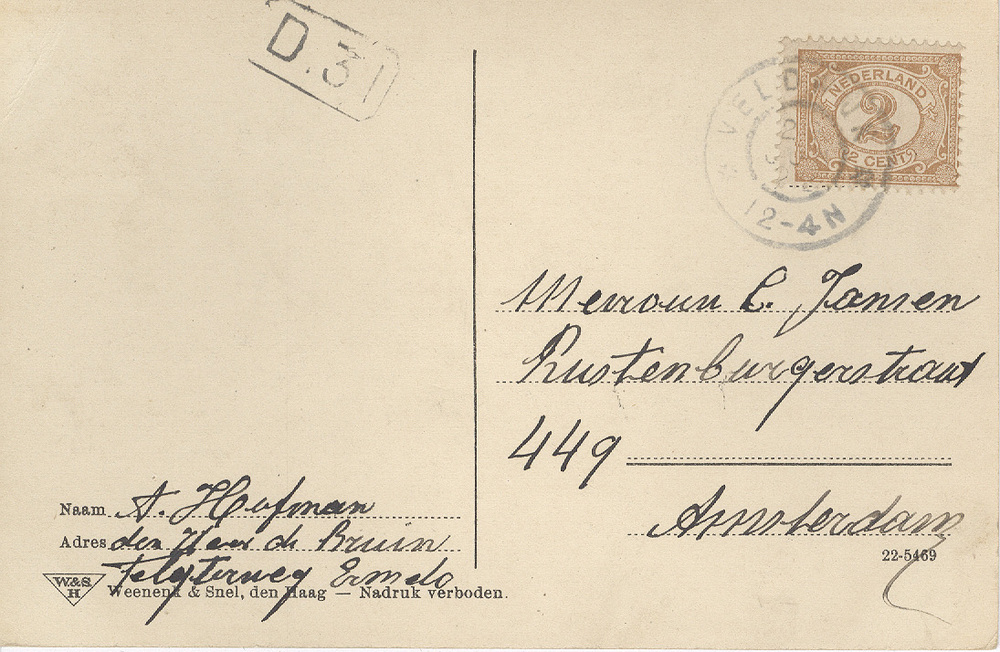 D.31
NEDERLAND
2
(2 CENT)
VELD
12-4N
Mevrouw C. Jansen
Rustenburgerstraat
449
Amsterdam
22-5469
Naam A. Hofman
Adres den Heer de Bruin
Telgterweg Ermelo
W.&S.
H
Weenenk & Snel, den Haag — Nadruk verboden.